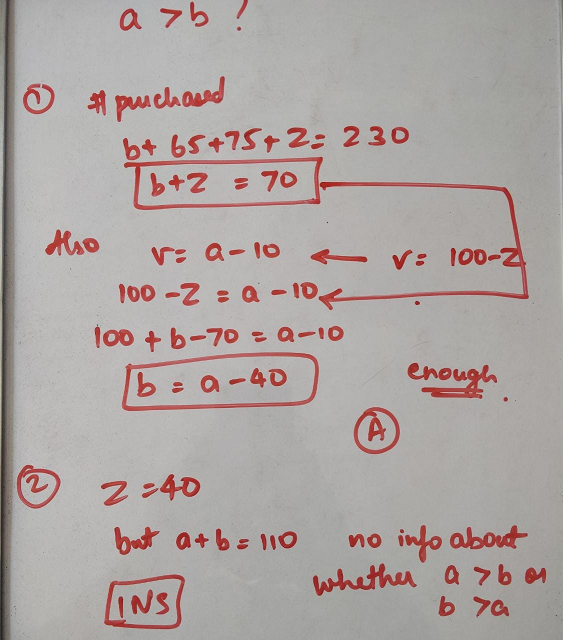 a > b ?
① # purchased
b + 65 + 75 + Z = 230
b + Z = 70
Also v = a - 10 ← v = 100 - Z
100 - Z = a - 10
100 + b - 70 = a - 10
b = a - 40
enough.
A
② Z = 40
but a + b = 110 no info about
whether a > b or
INS b > a